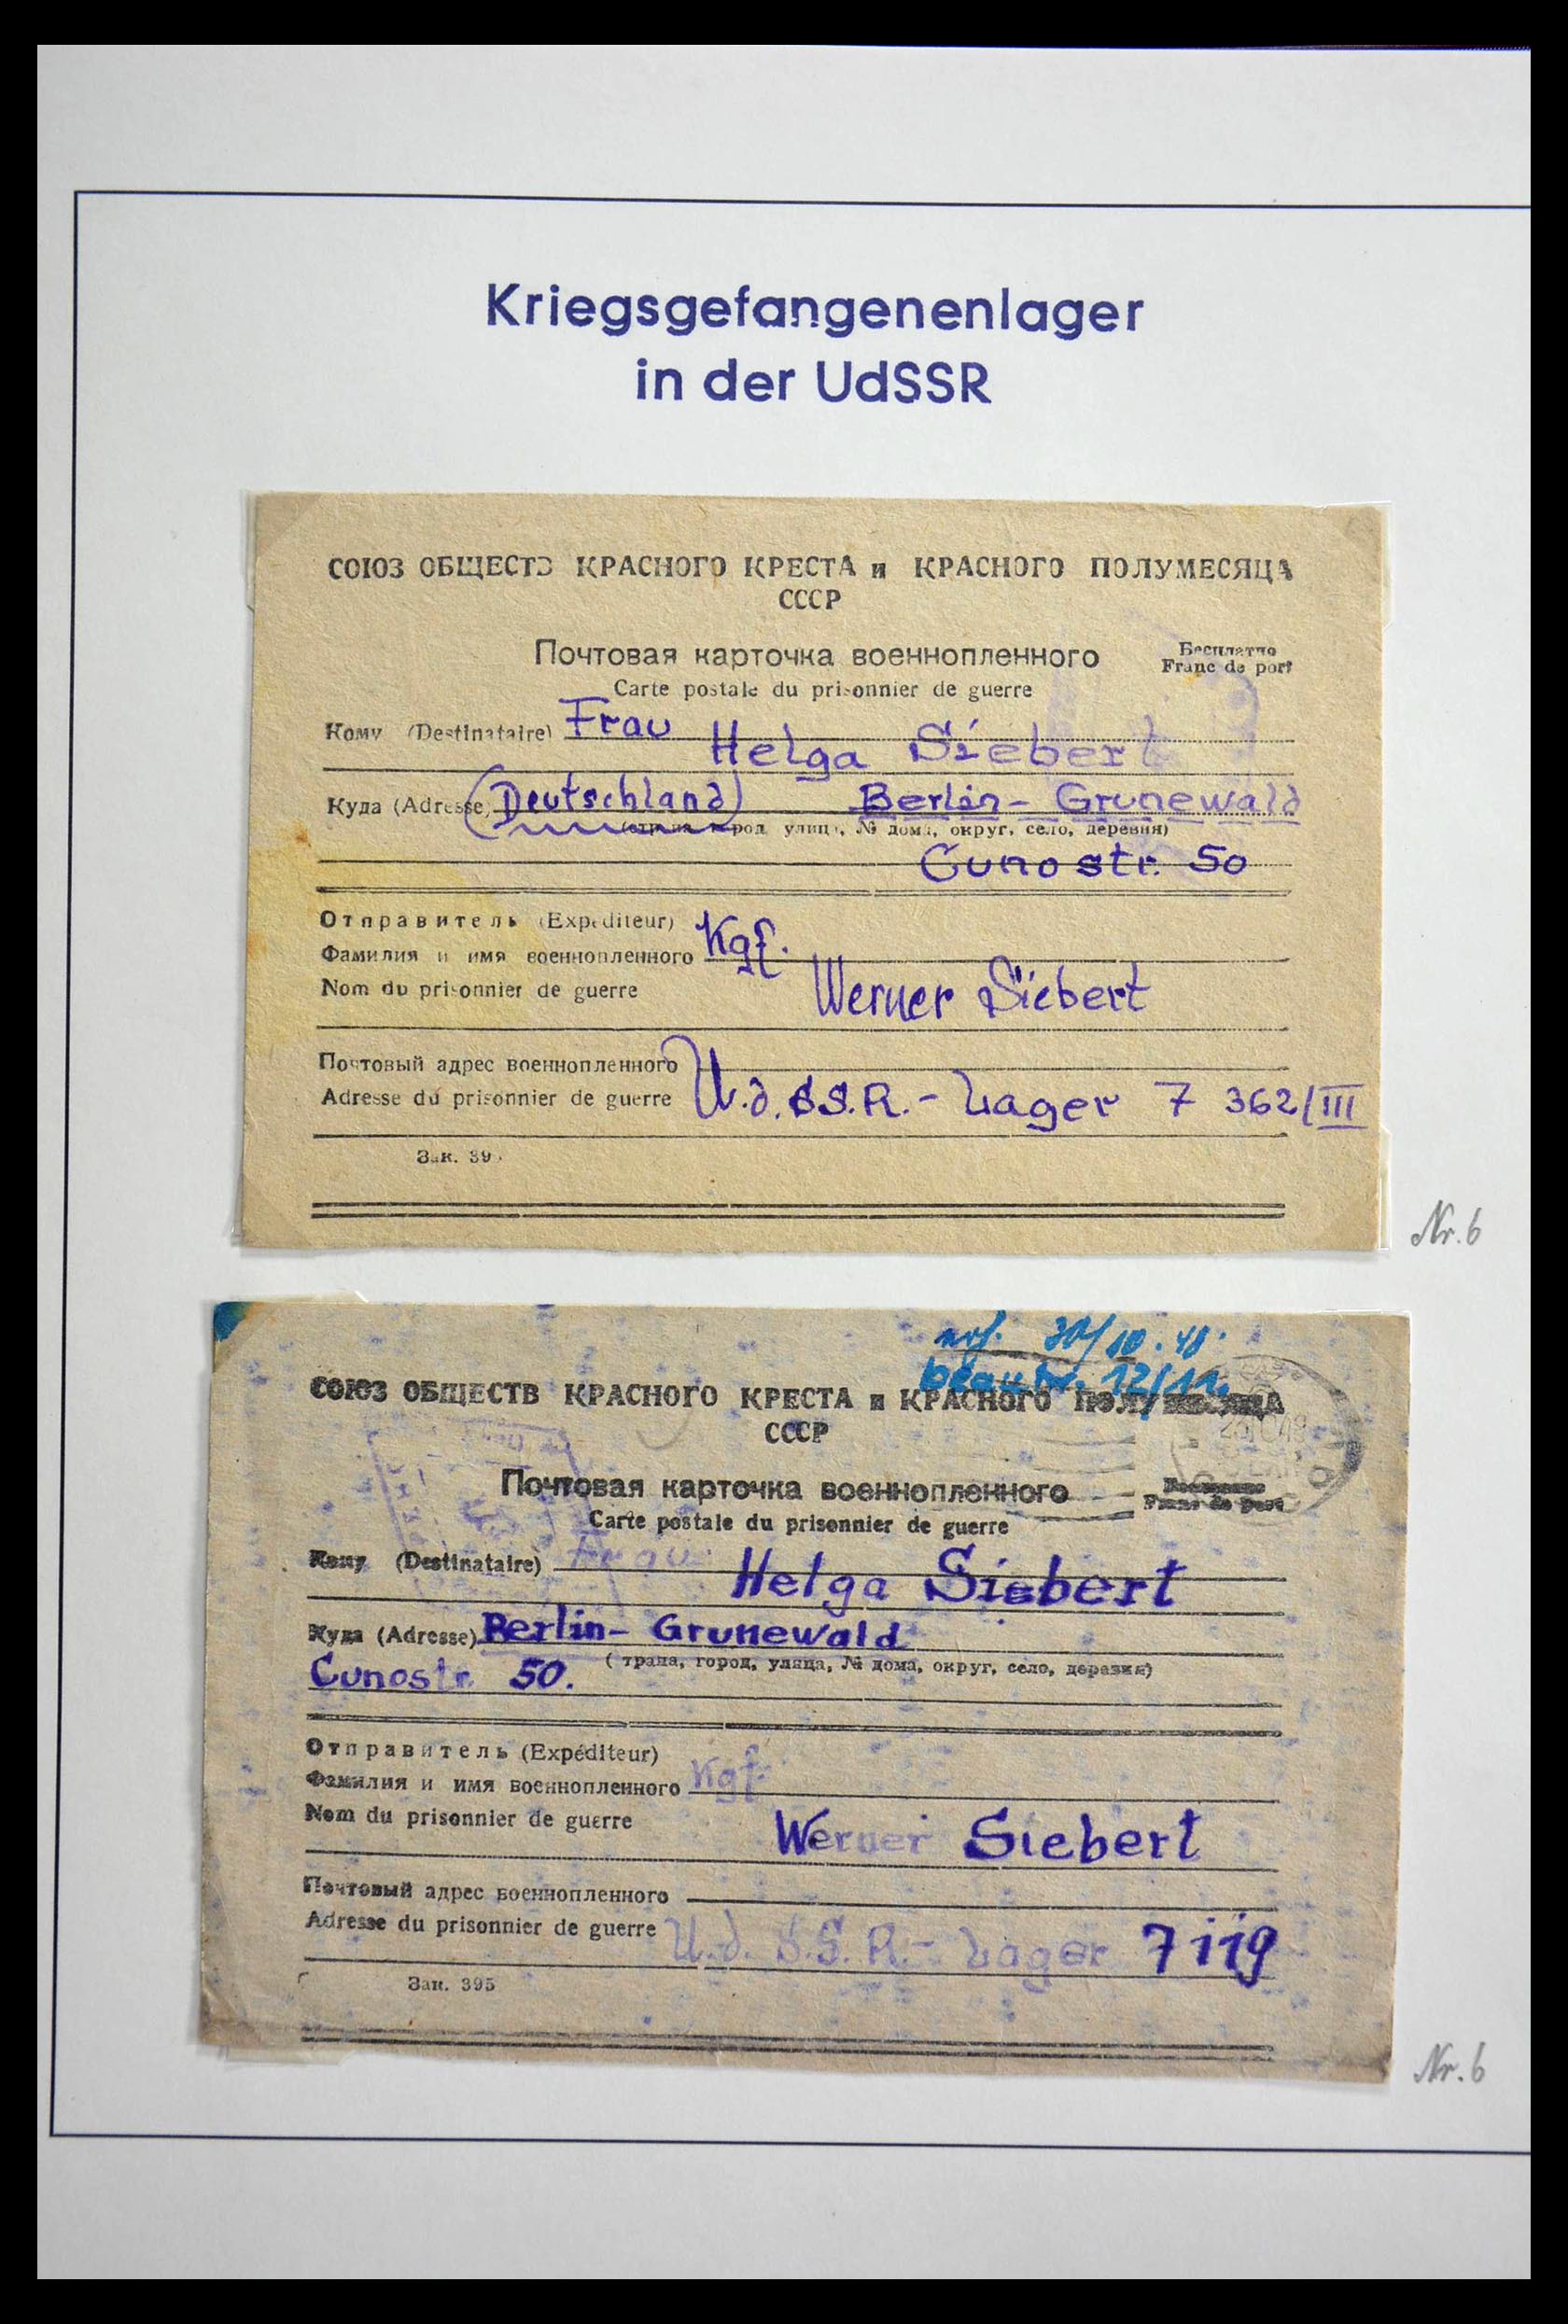 Kriegsgefangenenlager
in der UdSSR
СОЮЗ ОБЩЕСТВ КРАСНОГО КРЕСТА и КРАСНОГО ПОЛУМЕСЯЦА
СССР
Почтовая карточка военнопленного
Бесплатно
Franc de port
Carte postale du prisonnier de guerre
Кому (Destinataire) Frau
Helga Siebert
Куда (Adresse) (Deutschland) Berlin-Grunewald
(страна, город, улица, № дома, округ, село, деревня)
Cunostr. 50
Отправитель (Expéditeur)
Фамилия и имя военнопленного Kgf.
Nom du prisonnier de guerre Werner Siebert
Почтовый адрес военнопленного
Adresse du prisonnier de guerre U.d.SS.R.- Lager 7 362/III
Зак. 39
Nr. 6
30/10.48.
beantw. 12/11.
СОЮЗ ОБЩЕСТВ КРАСНОГО КРЕСТА и КРАСНОГО ПОЛУМЕСЯЦА
СССР
Почтовая карточка военнопленного
Бесплатно
Franc de port
Carte postale du prisonnier de guerre
Кому (Destinataire) Frau
Helga Siebert
Куда (Adresse) Berlin-Grunewald
(трана, город, улица, № дома, округ, село, деревня)
Cunostr. 50.
Отправитель (Expéditeur)
Фамилия и имя военнопленного Kgf.
Nom du prisonnier de guerre Werner Siebert
Почтовый адрес военнопленного
Adresse du prisonnier de guerre U.d.S.S.R.- Lager 7119
Зак. 395
Nr. 6